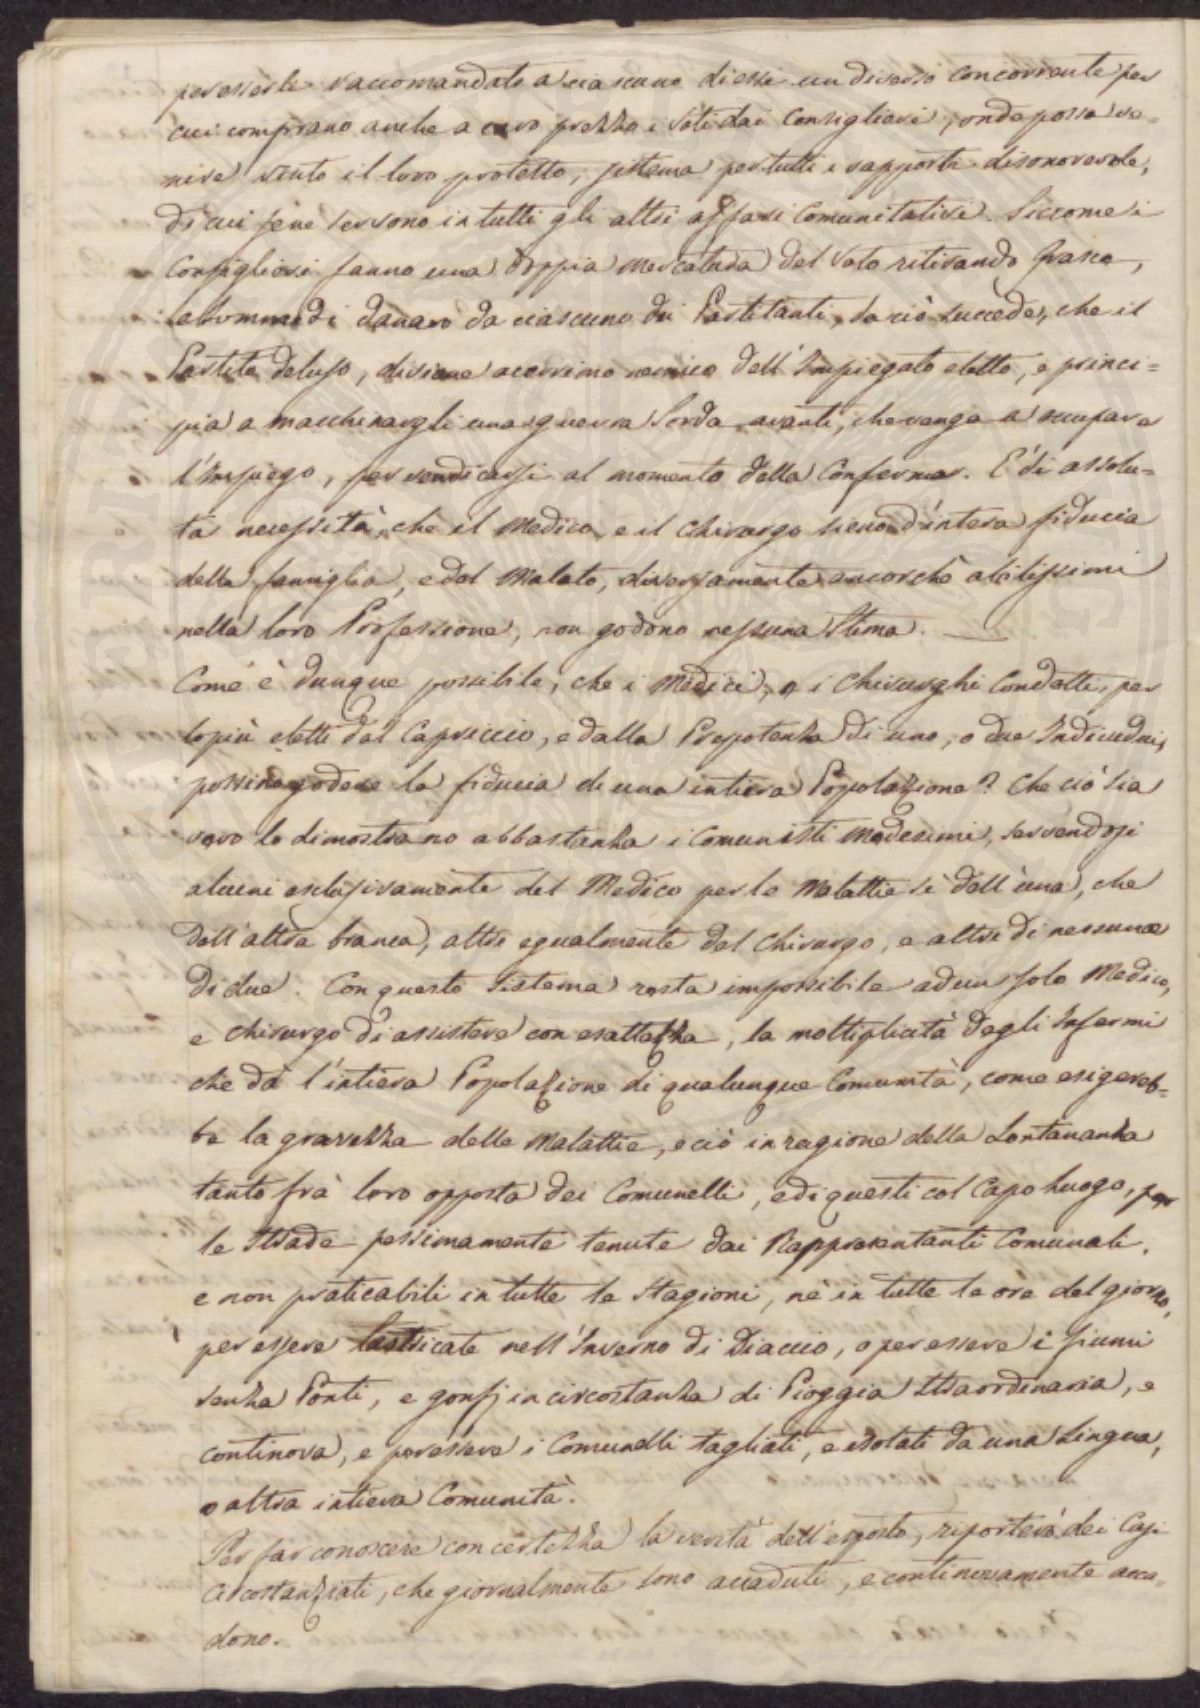 per esserle raccomandato a ciascuno di essi un diverso Concorrente per
cui comprano anche a caro prezzo i Voti dai Consiglieri, onde possa ve=
nire vinto il loro protetto, sistema per tutti i rapporti disonorevole,
di cui se ne servono in tutti gli altri affari Comunitativi. Siccome i
Consiglieri fanno una doppia Mercatura del Voto ritirando Grascie,
e Somme di danaro da ciascuno dei Partitanti, da ciò succede, che il
Partito deluso, diviene acerrimo nemico dell'Impiegato eletto, e princi=
pia a macchinargli una guerra Sorda avanti, che venga a occupare
l'Impiego, per vendicarsi al momento della Conferma. E' di assolu=
ta necessità, che il Medico, e il Chirurgo sieno d'intera fiducia
della famiglia, e del Malato, diversamente ancorchè abilissimi
nella loro Professione, non godono nessuna Stima.
Come è dunque possibile, che i Medici, e i Chirurghi Condotti, per
lo più eletti dal Capriccio, e dalla Prepotenza di uno, o due Individui,
possino godere la fiducia di una intiera Popolazione? Che ciò sia
vero lo dimostrano abbastanza i Comunisti Medesimi, servendosi
alcuni esclusivamente del Medico per le Malattie sì dell'una, che
dell'altra branca, altri egualmente del Chirurgo, e altri di nessuno
di due. Con questo Sistema resta impossibile ad un solo Medico,
e Chirurgo di assistere con esattezza, la moltiplicità degli Infermi
che dà l'intiera Popolazione di qualunque Comunità, come esigereb=
be la gravezza delle Malattie, e ciò in ragione della Lontananza
tanto frà loro opposta dei Comunelli, e di questi col Capo Luogo, per
le Strade pessimamente tenute dai Rappresentanti Comunali,
e non praticabili in tutte le Stagioni, nè in tutte le ore del giorno,
per essere lastricate nell'Inverno di Diaccio, o per essere i fiumi
senza Ponti, e gonfj in circostanza di Pioggia Straordinaria, e
continova, e per essere i Comunelli tagliati, e isolati da una Lingua,
o altra intiera Comunità.
Per far conoscere con certezza la verità dell'esposto, riporterò dei Casi
Circostanziati, che giornalmente sono accaduti, e continuamente acca=
dono.